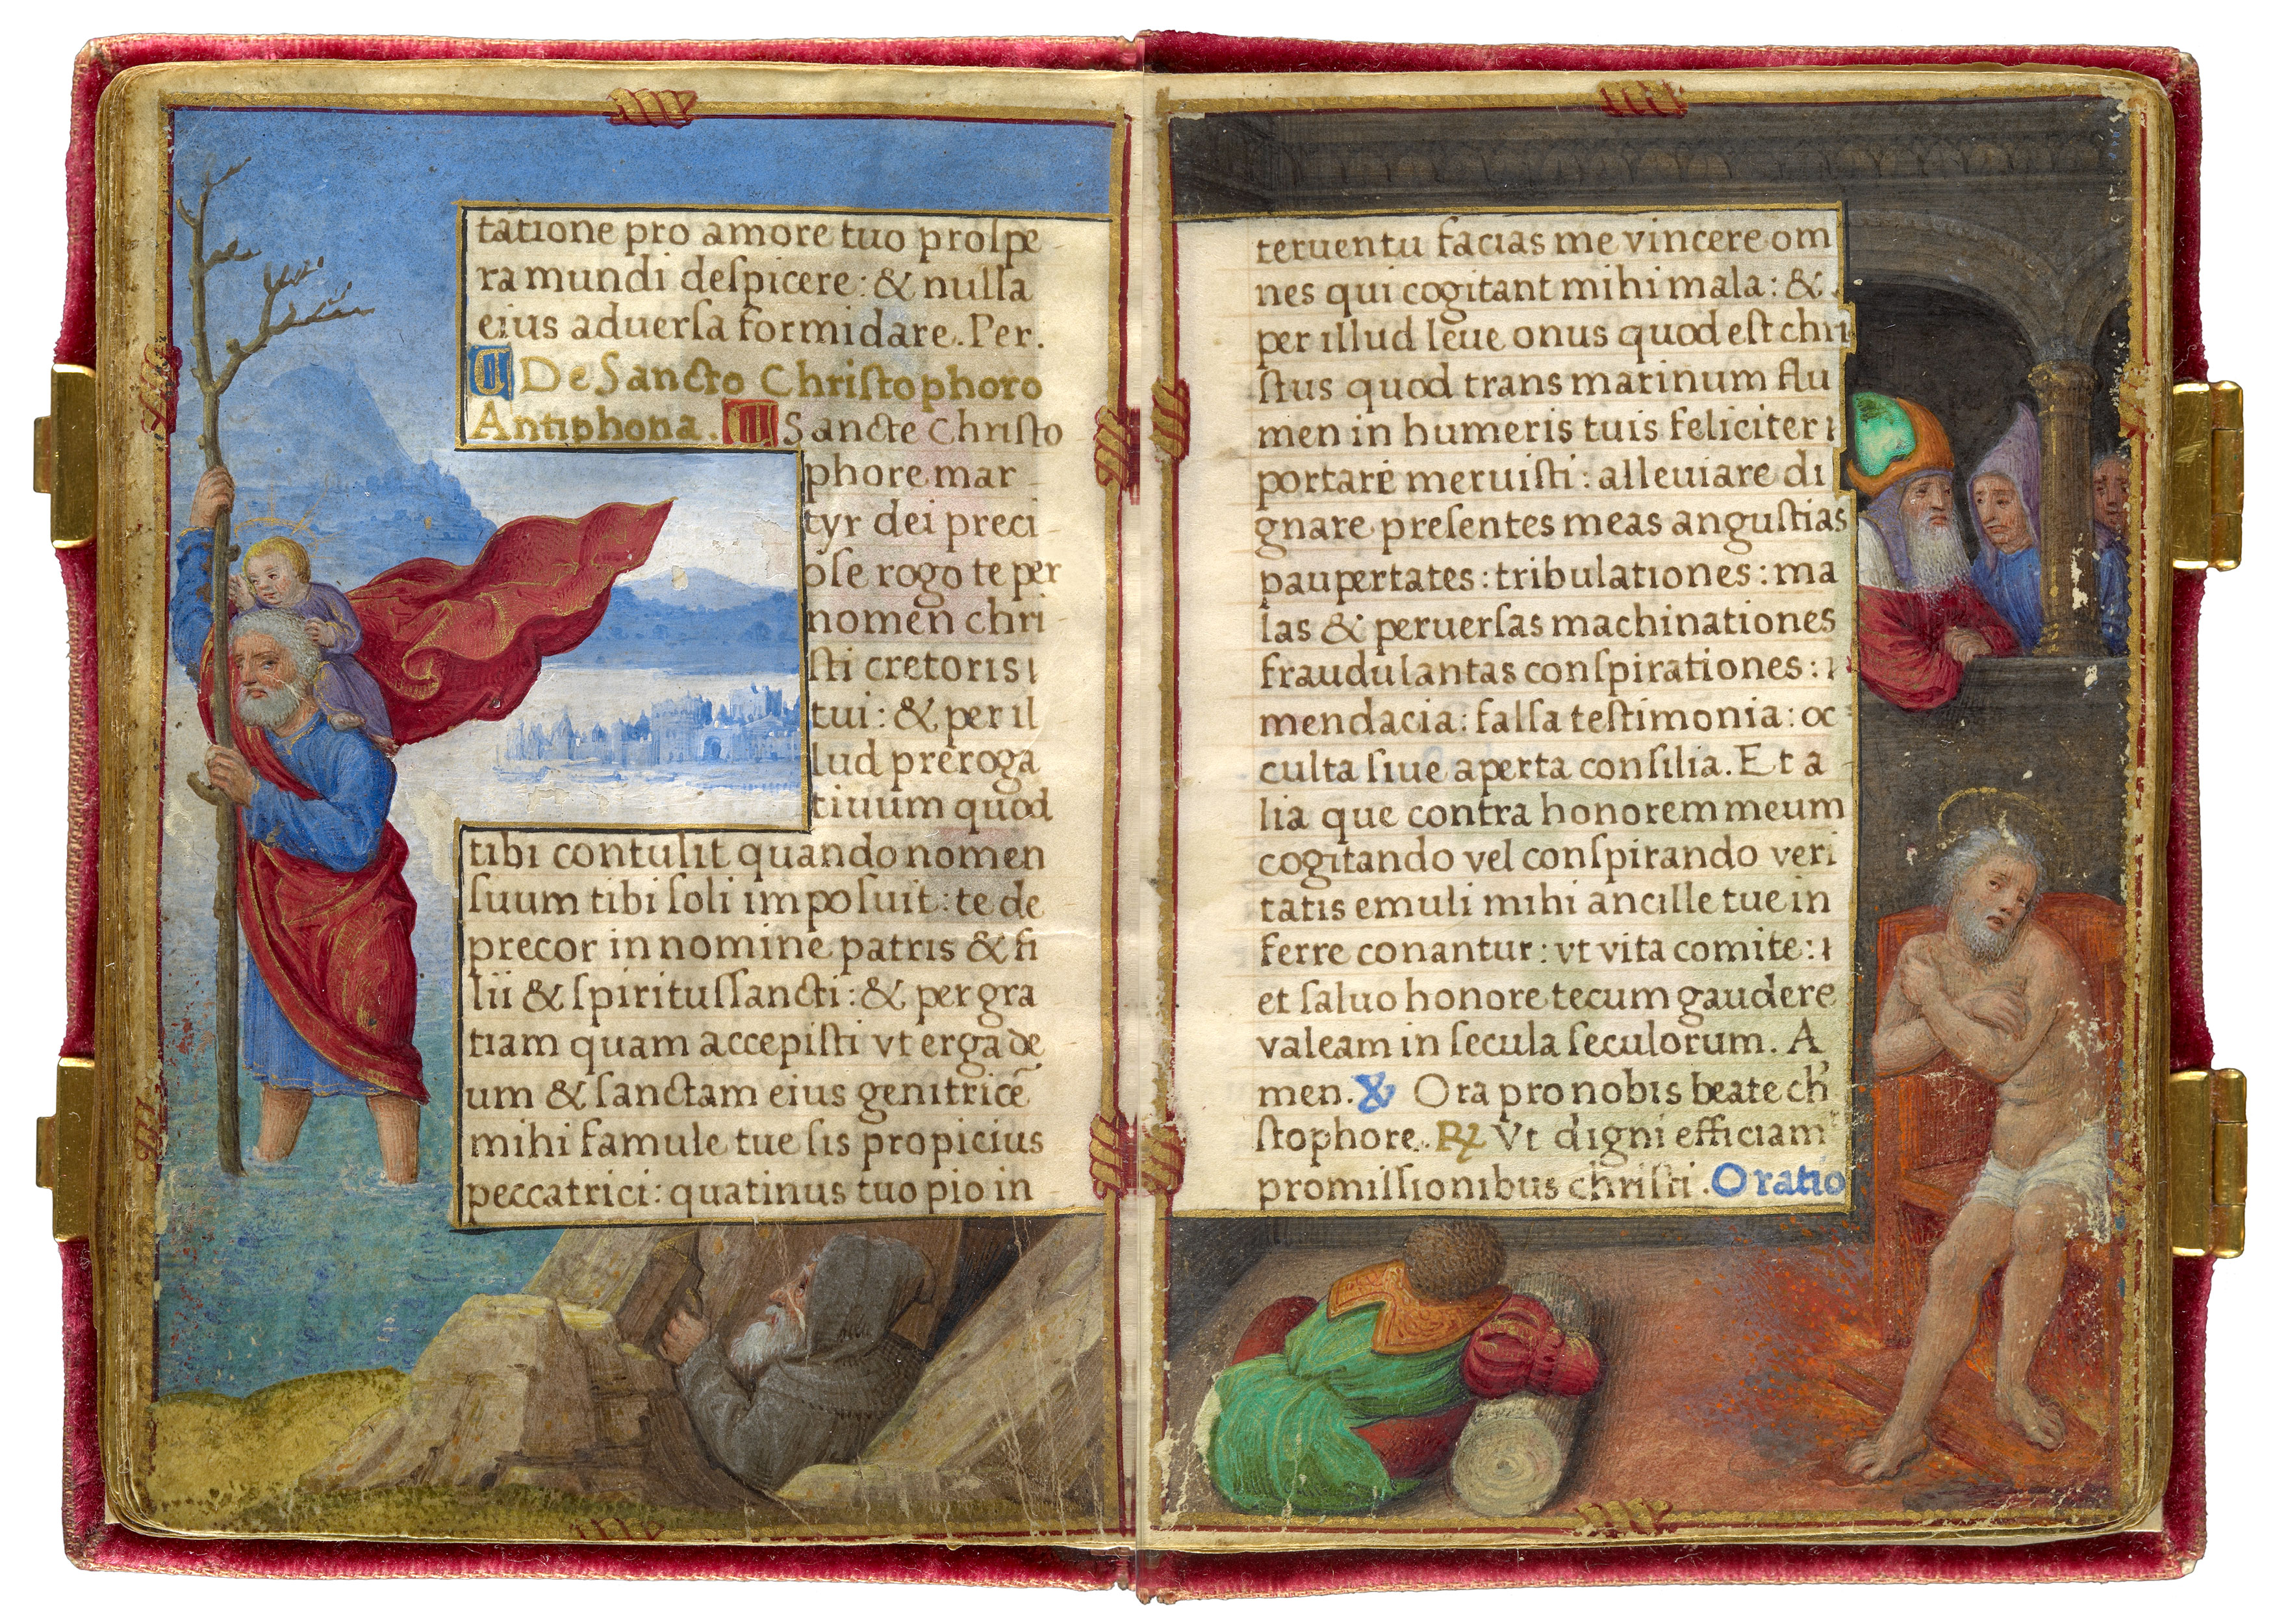 tatione pro amore tuo proſpe
ra mundi deſpicere: & nulla
eius aduerſa formidare. Per.
De Sancto Chriſtophoro
Antiphona. Sancte Chriſto
phore mar
tyr dei preci
oſe rogo te per
nomen chri
ſti cretoris
tui: & per il
lud preroga
tiuum quod
tibi contulit quando nomen
ſuum tibi ſoli impoſuit: te de
precor in nomine patris & fi
lii & ſpirituſſancti: & per gra
tiam quam accepiſti vt erga de
um & ſanctam eius genitricē
mihi famule tue ſis propicius
peccatrici: quatinus tuo pio in
teruentu facias me vincere om
nes qui cogitant mihi mala: &
per illud leue onus quod eſt chri
ſtus quod trans marinum flu
men in humeris tuis feliciter
portare meruiſti: alleuiare di
gnare preſentes meas anguſtias
paupertates: tribulationes: ma
las & peruerſas machinationes
fraudulantas conſpirationes:
mendacia: falſa teſtimonia: oc
culta ſiue aperta conſilia. Et a
lia que contra honorem meum
cogitando vel conſpirando veri
tatis emuli mihi ancille tue in
ferre conantur: vt vita comite:
et ſaluo honore tecum gaudere
valeam in ſecula ſeculorum. A
men. ℣ Ora pro nobis beate chr̄
ſtophore. ℟ Vt digni efficiamᷣ
promiſſionibus chriſti. Oratio